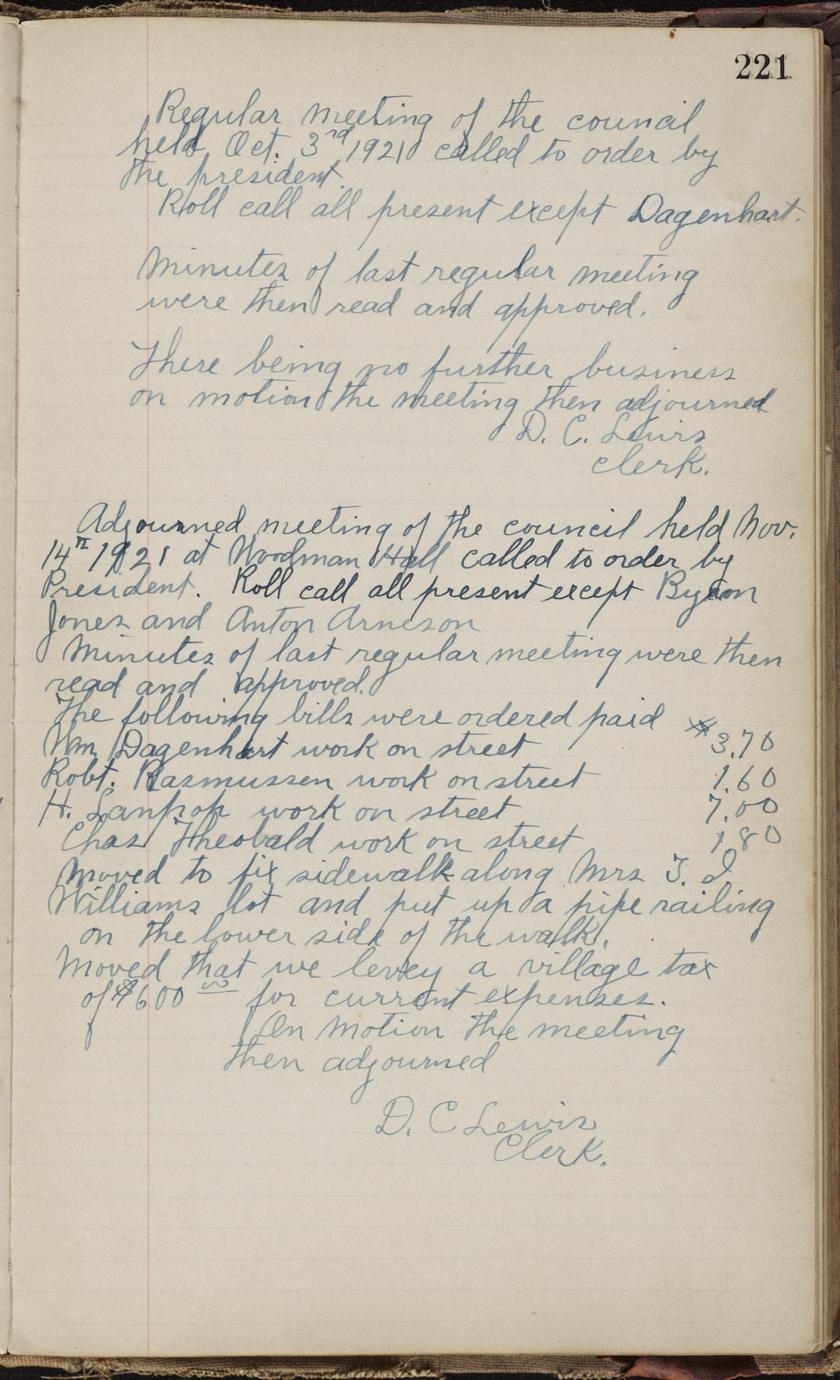 221
Regular meeting of the council
held Oct. 3rd 1921 called to order by
the president.
Roll call all present except Dagenhart.
Minutes of last regular meeting
were then read and approved.
There being no further business
on motion the meeting then adjourned
D. C. Lewis
Clerk.
Adjourned meeting of the council held Nov.
14th 1921 at Woodman Hall called to order by
President. Roll call all present except Byron
Jones and Anton Arneson
Minutes of last regular meeting were then
read and approved.
The following bills were ordered paid
Wm Dagenhart work on street $3.70
Robt. Rasmussen work on street 1.60
H. Lanpop work on street 7.00
Chas Theobald work on street 1.80
Moved to fix sidewalk along Mrs T. J.
Williams lot and put up a pipe railing
on the lower side of the walk.
Moved that we levey a village tax
of $600 00 for current expenses.
On motion the meeting
then adjourned
D. C Lewis
Clerk.